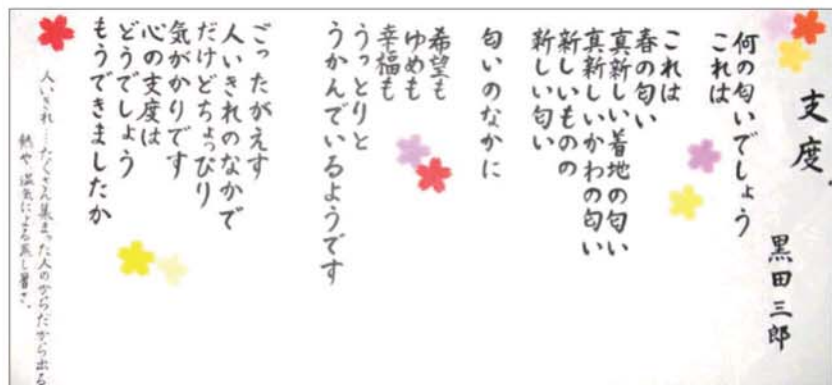 支度
黒田三郎
何の匂いでしょう
これは
これは
春の匂い
真新しい着地の匂い
真新しいかわの匂い
新しいものの
新しい匂い
匂いのなかに
希望も
ゆめも
幸福も
うっとりと
うかんでいるようです
ごったがえす
人いきれのなかで
だけどちょっぴり
気がかりです
心の支度は
どうでしょう
もうできましたか
人いきれ…たくさん集まった人のからだから出る
熱や湿気による蒸し暑さ。